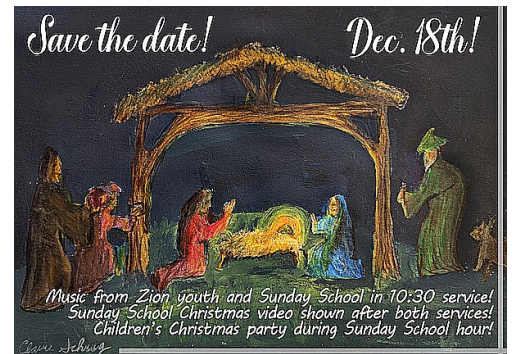 Save the date!
Dec. 18th!
Music from Zion youth and Sunday School in 10:30 service!
Sunday School Christmas video shown after both services!
Children's Christmas party during Sunday School hour!